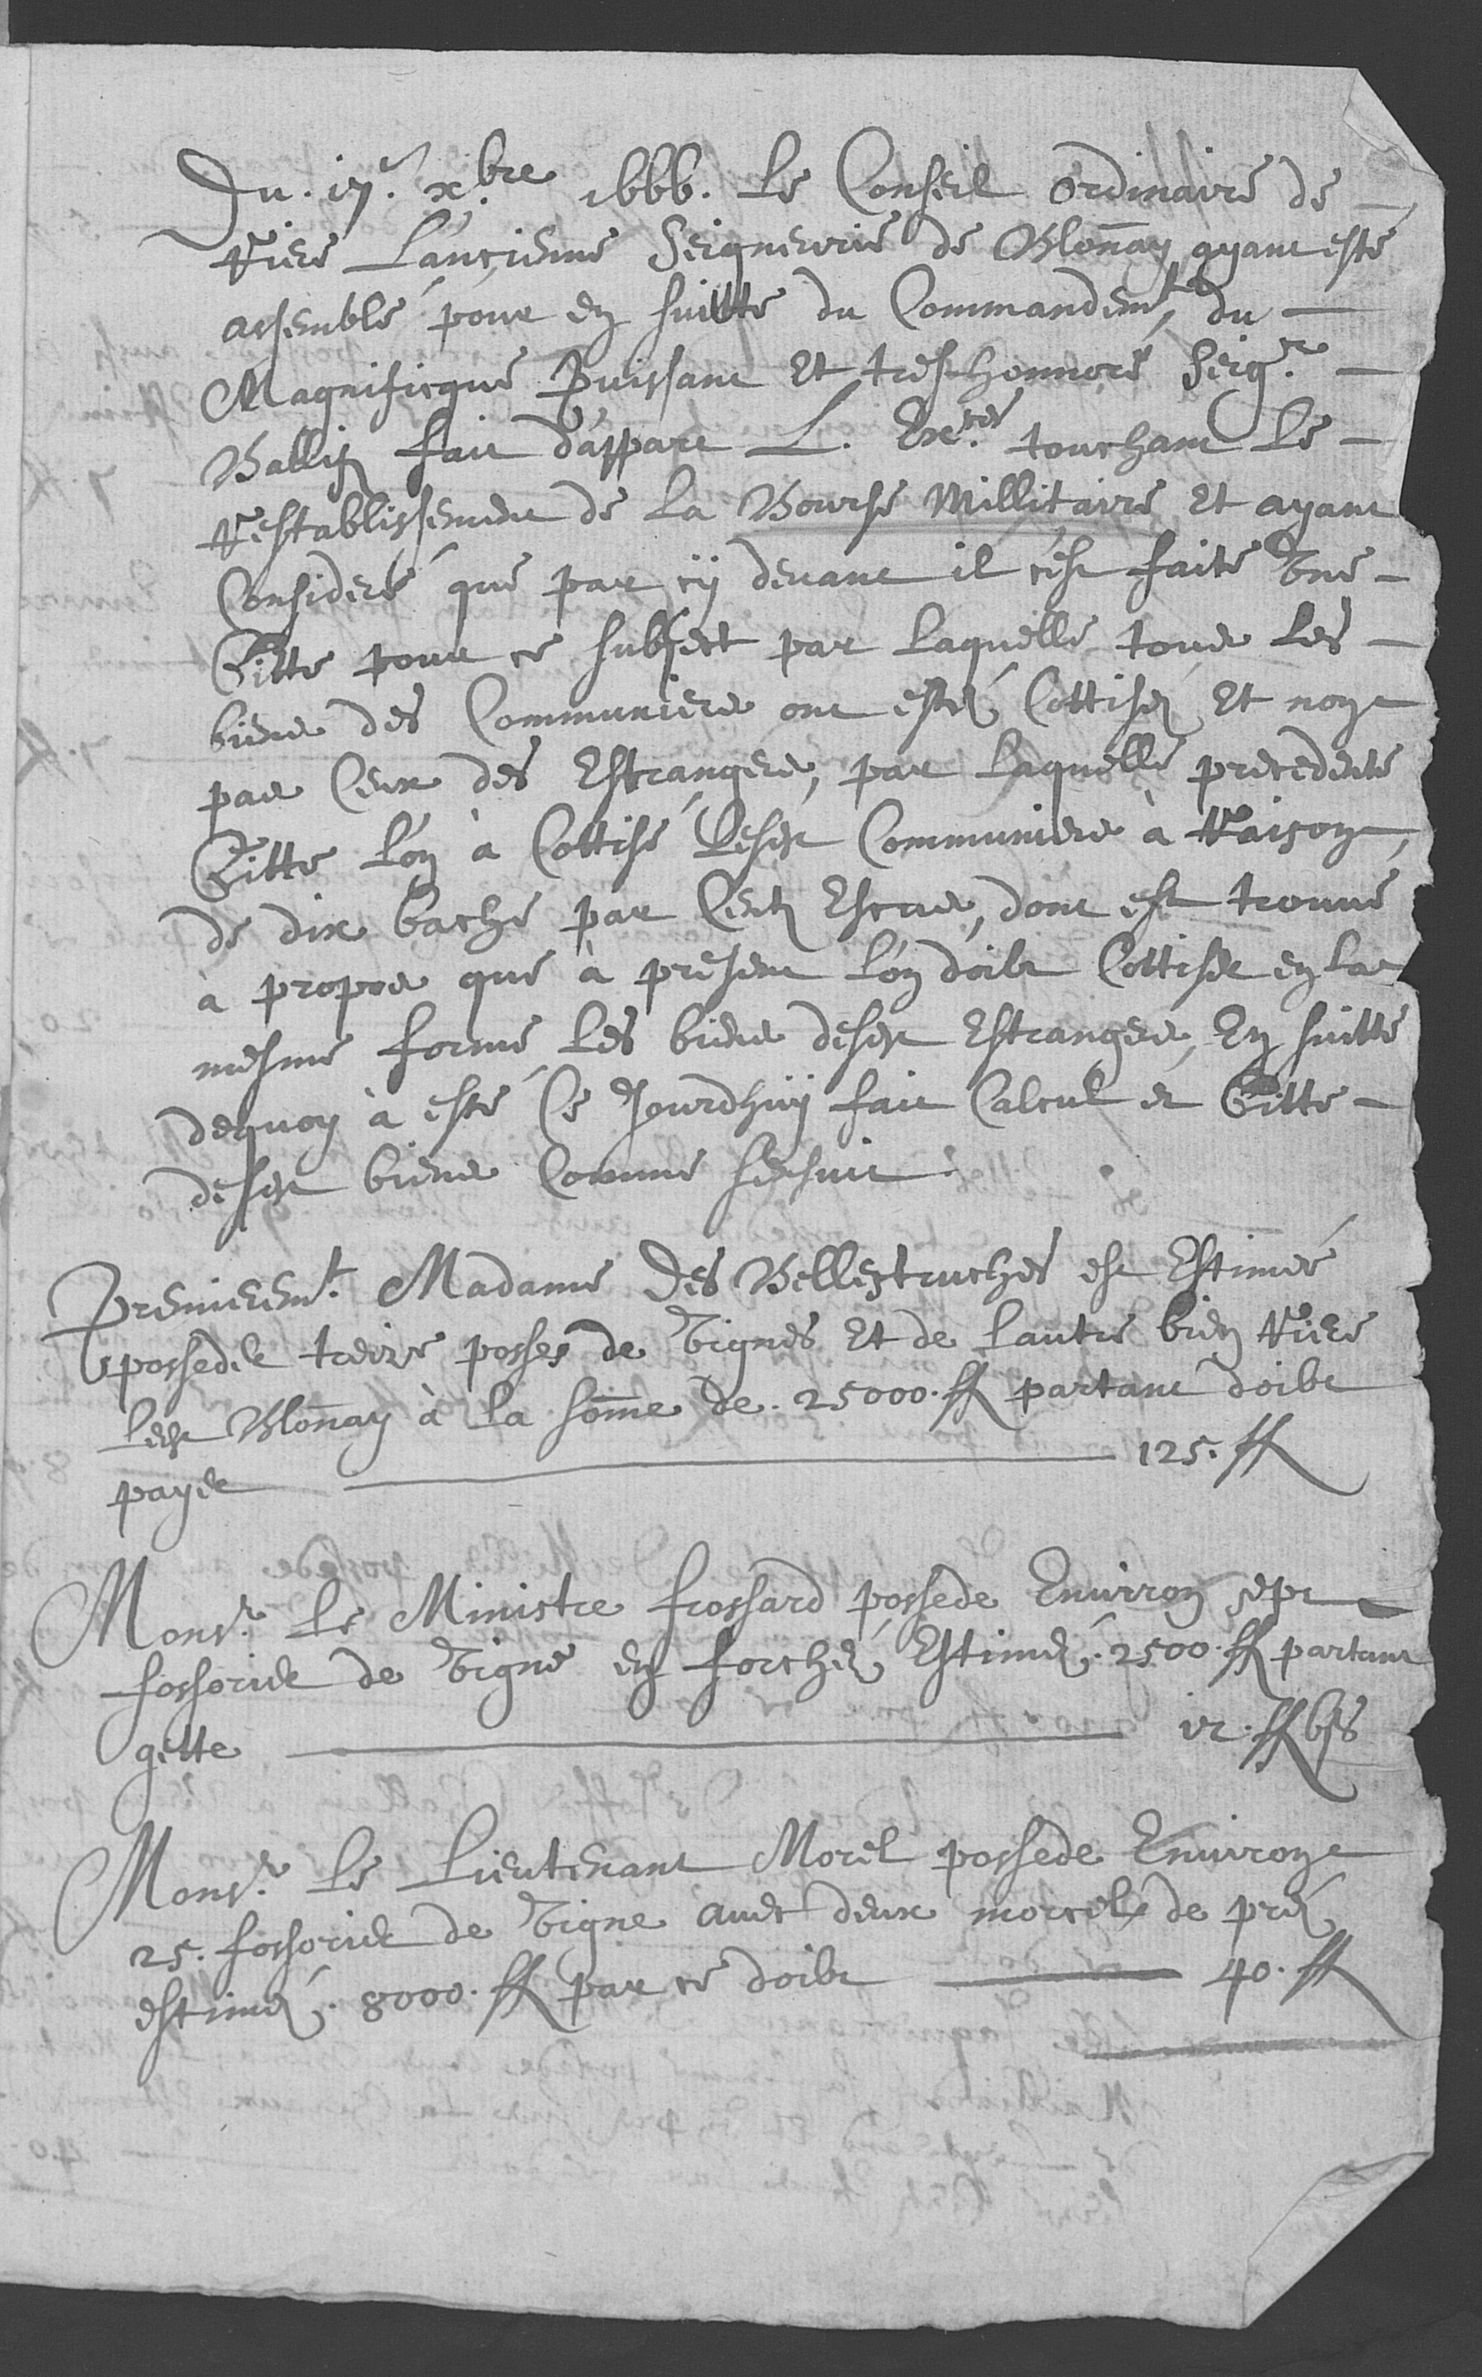 Du. 17.e xbre 1666. Le Conseil ordinaire de
Riere L'ancienne Seigneurie de Blonay ayant esté
assemblé pour en suitte du Commandemt, du
Magnificque Puissant Et tres honnoré Seigr.
Ballif fait d'appart L. Exces touchant Le
restablissement de La Bourse Millitaire Et ayant
Consideré que par cy devant il c'est faite Vne
Gitte pour ce subject par laquelle tous Les
biens des Communiers ont estés Cottisés Et non
pas Ceux des Estrangers, par laquelle precedente
Gitte L'on à Cottisé Lesdt Communiers à Raison
de dix bache par Cent Escus, dont est trouué
à propos que à present L'on doibt Cottiser en la
mesme forme Les biens desdt Estrangers, En suitte
dequoy à esté Ce Jourdhuy fait Calcul et Gitte
desdt biens Comme s'ensuit:
Premieremt. Madame Des Bellestruches est Estimée
posseder treize posses de Vignes Et de Lautre bien Riere
Ledt Blonay à La somme de. 25000. ff partant doibt
payer 125. ff
Monsr. Le Ministre frossard possede Enuiron sept
fossorier de Vigne en forches Estimés. 2500. ff partant
gette 12. ff 6 s
Monsr. Le Lieutenant Morel possede Enuiron
25. fossorier de Vigne auec deux morcels de prés
estimés. 8000. ff par ce doibt 40. ff